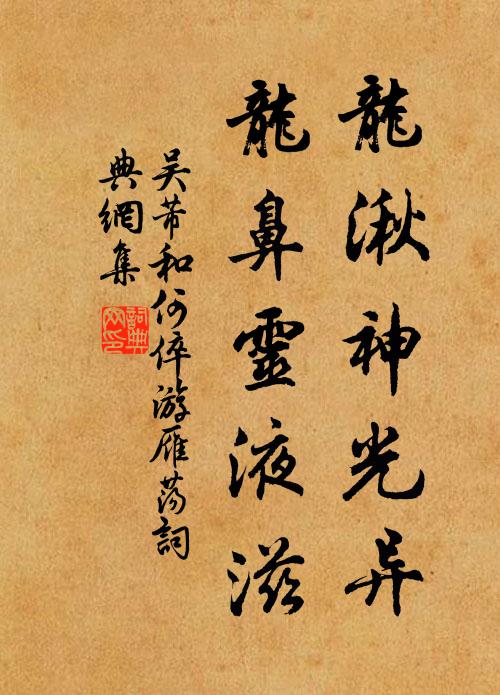 龍湫神光异
龍鼻靈液滋
吴芾和何倅游雁蕩詞
典網集
詞典
网印